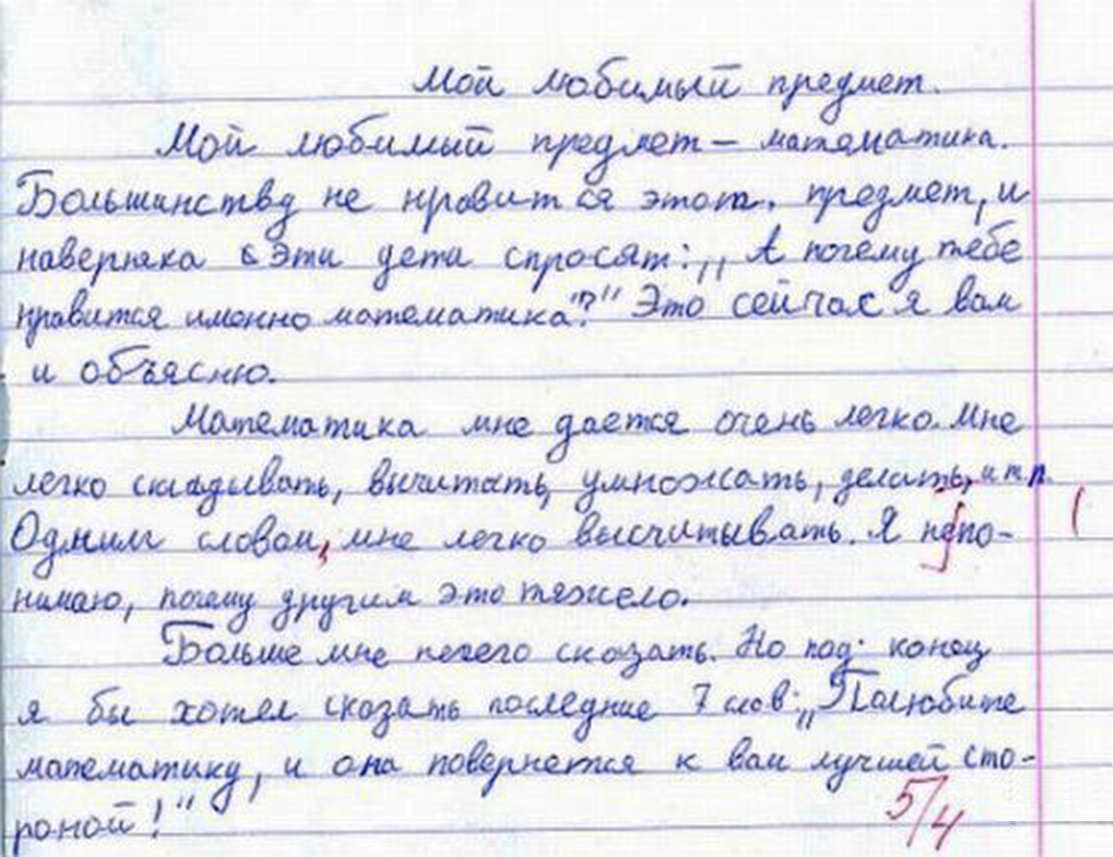 Мой любимый предмет.
Мой любимый предмет – математика.
Большинству не нравится этот предмет, и
наверняка эти дети спросят: „А почему тебе
нравится именно математика?" Это сейчас я вам
и объясню.
Математика мне дается очень легко. Мне
легко складывать, вычитать, умножать, делить, и т.п.
Одним словом, мне легко высчитывать. Я непо-
нимаю, почему другим это тяжело.
Больше мне нечего сказать. Но под конец
я бы хотел сказать последние 7 слов: „Полюбите
математику, и она повернется к вам лучшей сто-
роной!"
5/4